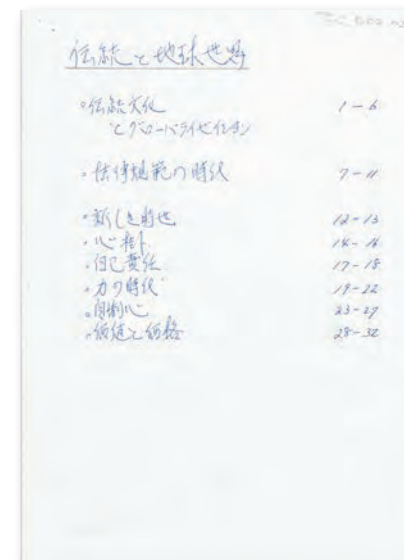 伝統と地球世界
・伝統文化 1-6
とグローバライゼイション
・法律規範の時代 7-11
・新しき時世 12-13
・心掛 14-16
・自己責任 17-18
・力の時代 19-22
・自制心 23-27
・価値と価格 28-32